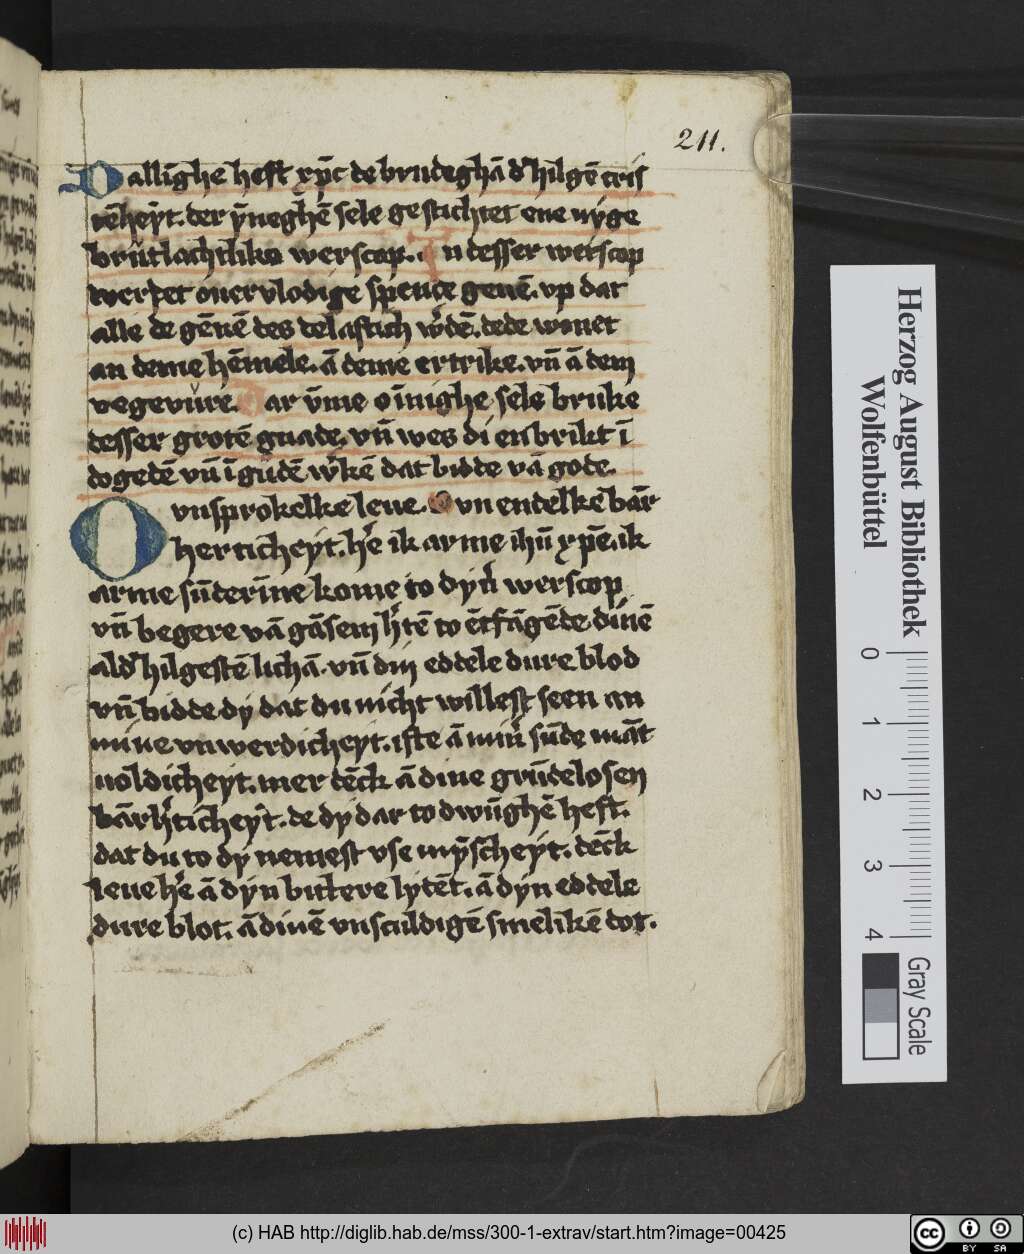 211.
Dallīghe heft xp̄c de brudeghā d' hilgē cris
tēheyt. der ȳneghē sele gestichtet ene nyge
brutlachtlike werscop. In desser werscop
werdet ouervlodige spende geuē. vp dat
alle de gēnē des delaftich w'dē. dede wonet
an deme hēmele. ā deme ertrike. vn̄ ā dem
vegevure. Dar v̄me o īnighe sele bruke
desser grotē gnade. vn̄ wes di enbrikt ī
dogedē vn̄ ī gudē w'kē dat bidde vā gode.
O vnsprokelke leue. O vn endelke bār
herticheyt. h'e ik arme ihū xp̄e. ik
arme sūderīne kome to dyn' werscop
vn̄ begere vā gāsem h'tē to ētfāgēde dinē
ald' hilgestē lichā. vn̄ din eddele dure blod
vn̄ bidde dy dat du nicht willest seen an
mine vnwerdicheyt. ifte ā min' sūde māt
uoldicheyt. mer dēck ā dine grūdelosen
bārh'ticheyt. de dy dar to dwūghē heft.
dat du to dy nemest vse mȳscheyt. dēck
leue h'e ā dyn bittere lydēt. ā dyn eddele
dure blot. ā dinē vnsculdigē smelikē dot.
Herzog August Bibliothek
Wolfenbüttel
0 1 2 3 4
Gray Scale
(c) HAB http://diglib.hab.de/mss/300-1-extrav/start.htm?image=00425
cc BY SA